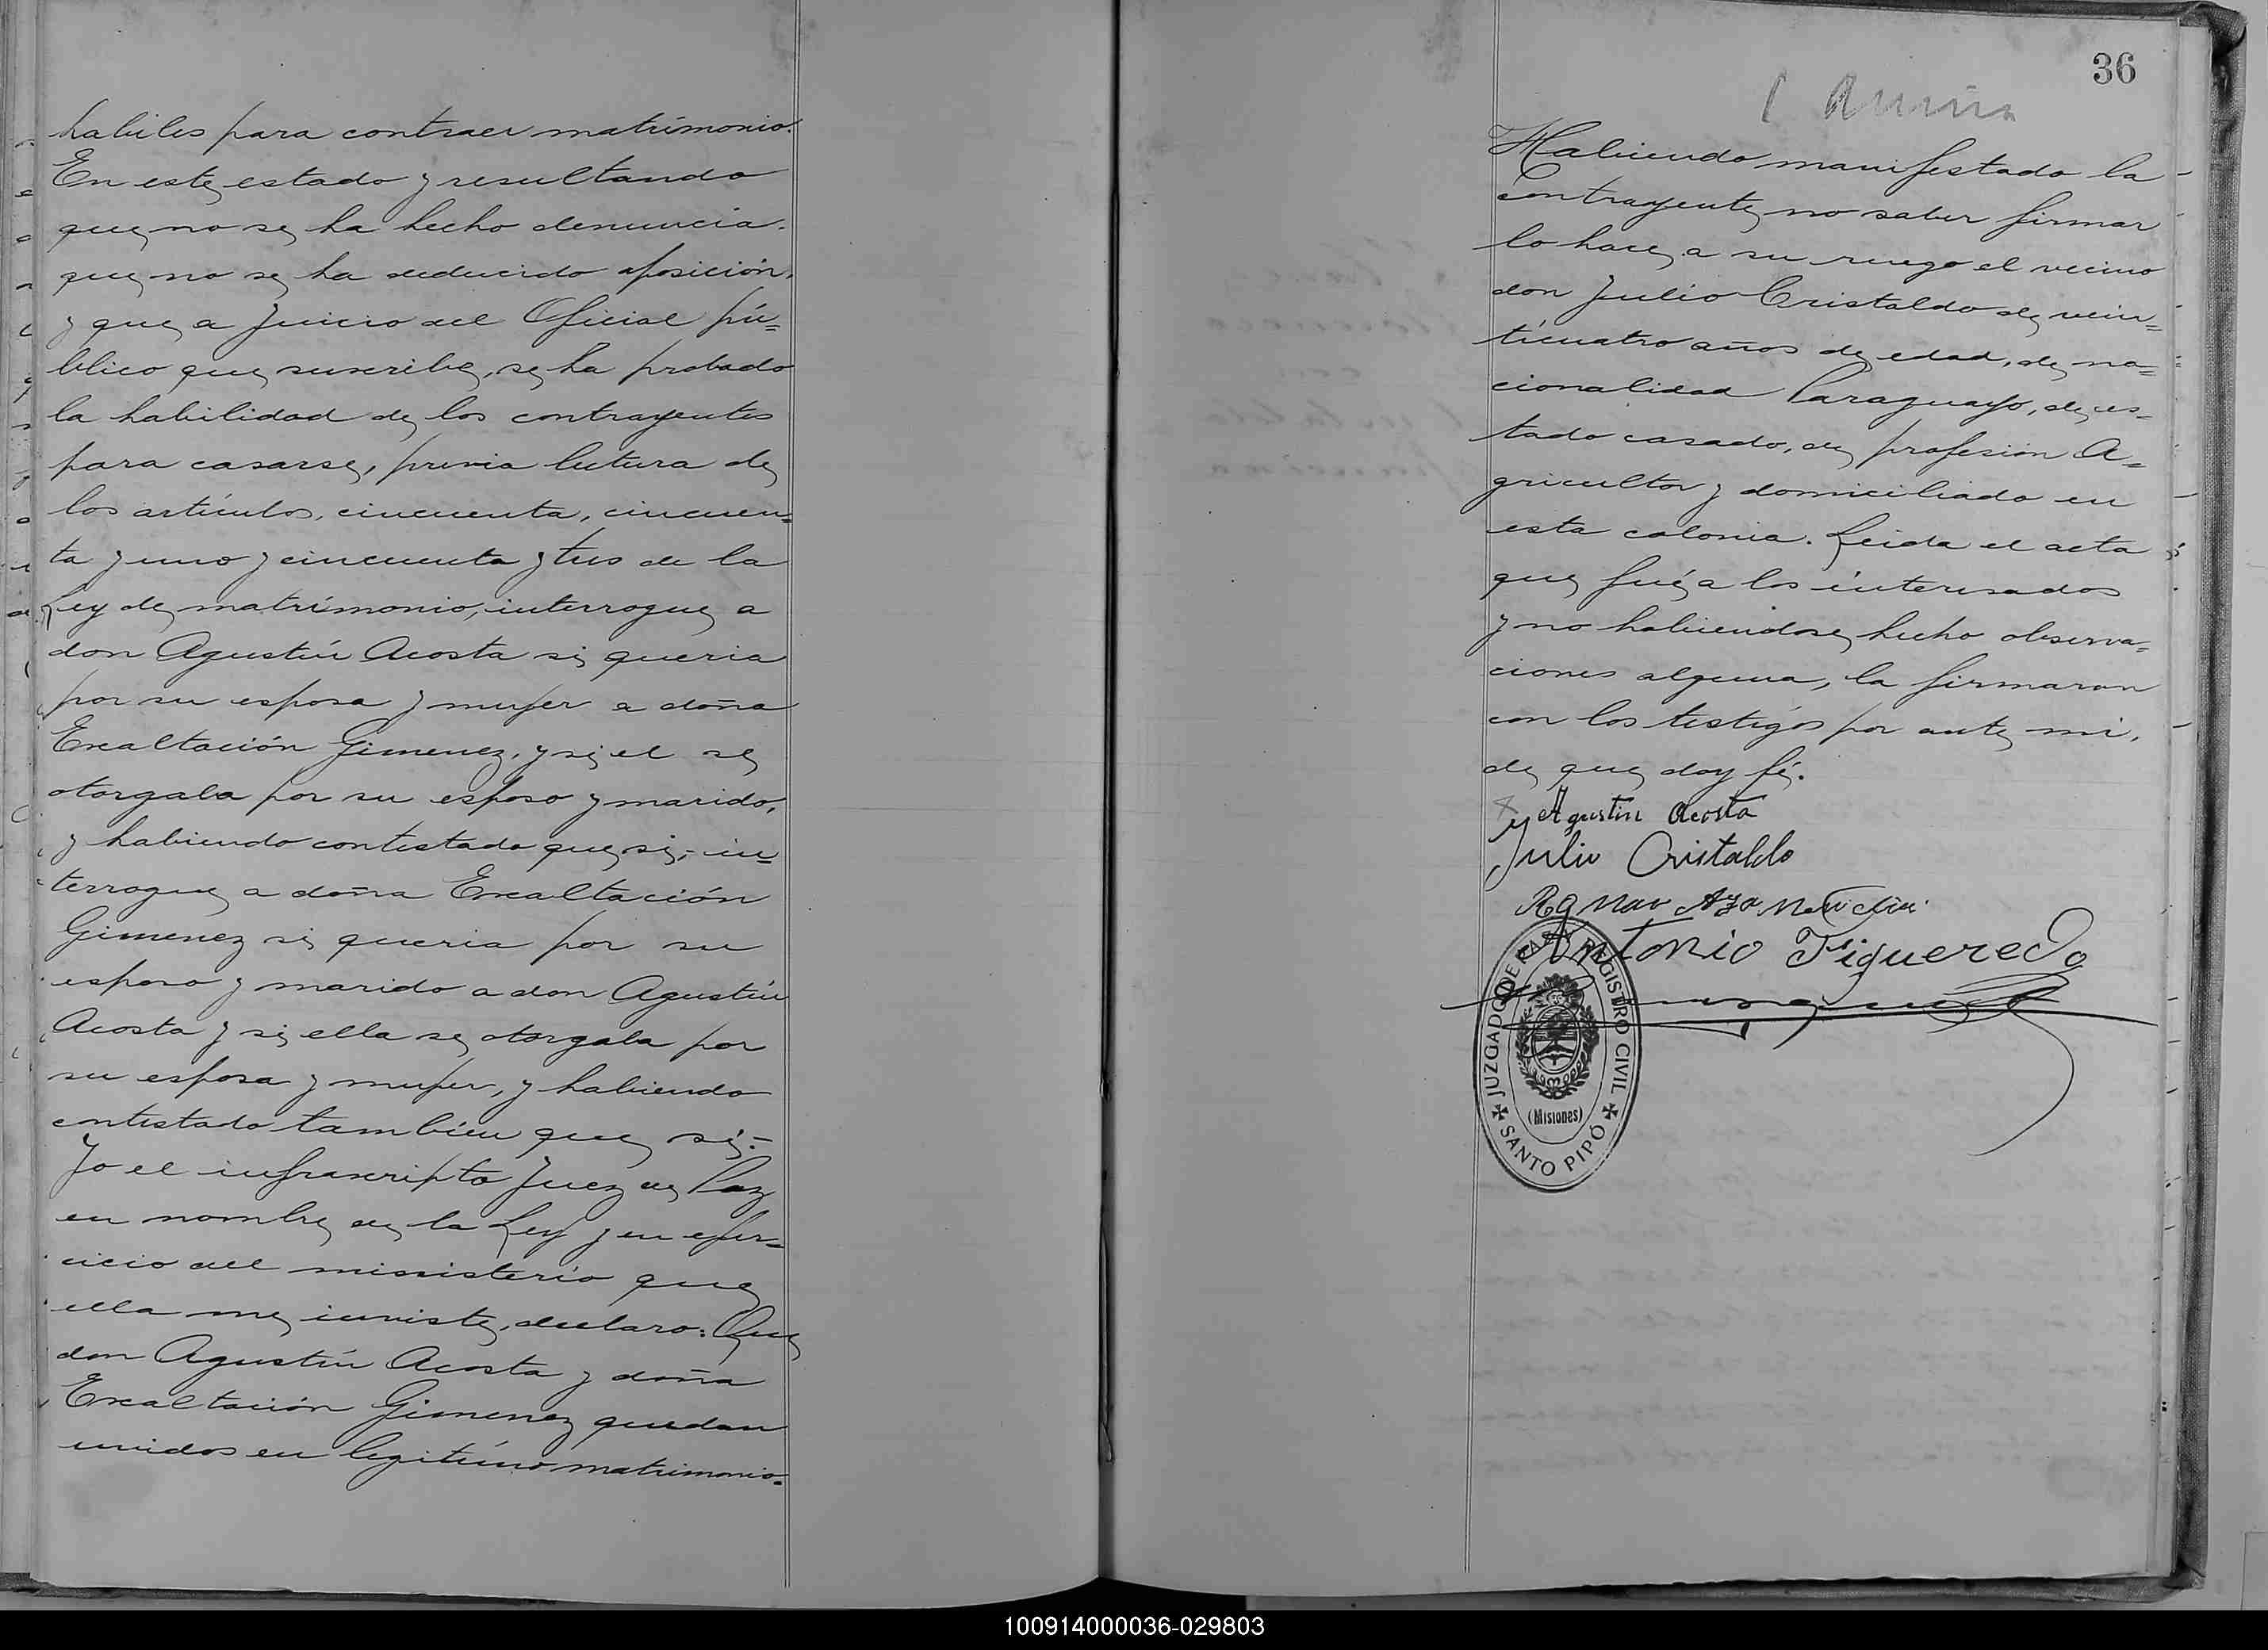 habiles para contraer matrimonio.
En este estado y resultando
que no se ha hecho denuncia.
que no se ha deducido oposición,
y que a juicio del Oficial pú=
blico que suscribe, se ha probado
la habilidad de los contrayentes
para casarse, previa lectura de
los artículos, cincuenta, cincuen=
ta y uno y cincuenta y tres de la
Ley de matrimonio, interrogue a
don Agustín Acosta si queria
por su esposa y mujer a doña
Exaltación Gimenez, y si el se
otorgaba por su esposo y marido,
y habiendo contestado que si,- in=
terrogue a doña Exaltación
Gimenez si queria por su
esposo y marido a don Agustín
Acosta y si ella se otorgaba por
su esposa y mujer, y habiendo
contestado también que si:-
Yo el infrascripto Juez de Paz
en nombre de la Ley y en ejer=
cicio del ministerio que
ella me inviste, declaro: Que
don Agustín Acosta y doña
Exaltación Gimenez quedan
unidos en legitimo matrimonio=
36
Habiendo manifestado la
contrayente no saber firmar
lo hace a su ruego el vecino
don Julio Cristaldo de vein=
ticuatro años de edad, de na=
cionalidad Paraguayo, de es=
tado casado, de profesión A=
gricultor y domiciliado en
esta colonia. Leida el acta
que fué a los interesados
y no habiendose hecho observa=
ciones alguna, la firmaron
con los testigos por ante mi,
de que doy fé.
Agustin Acosta
Julio Cristaldo
Antonio Figueredo
JUZGADO DE PAZ Y REGISTRO CIVIL
(Misiones)
SANTO PIPÓ
100914000036-029803